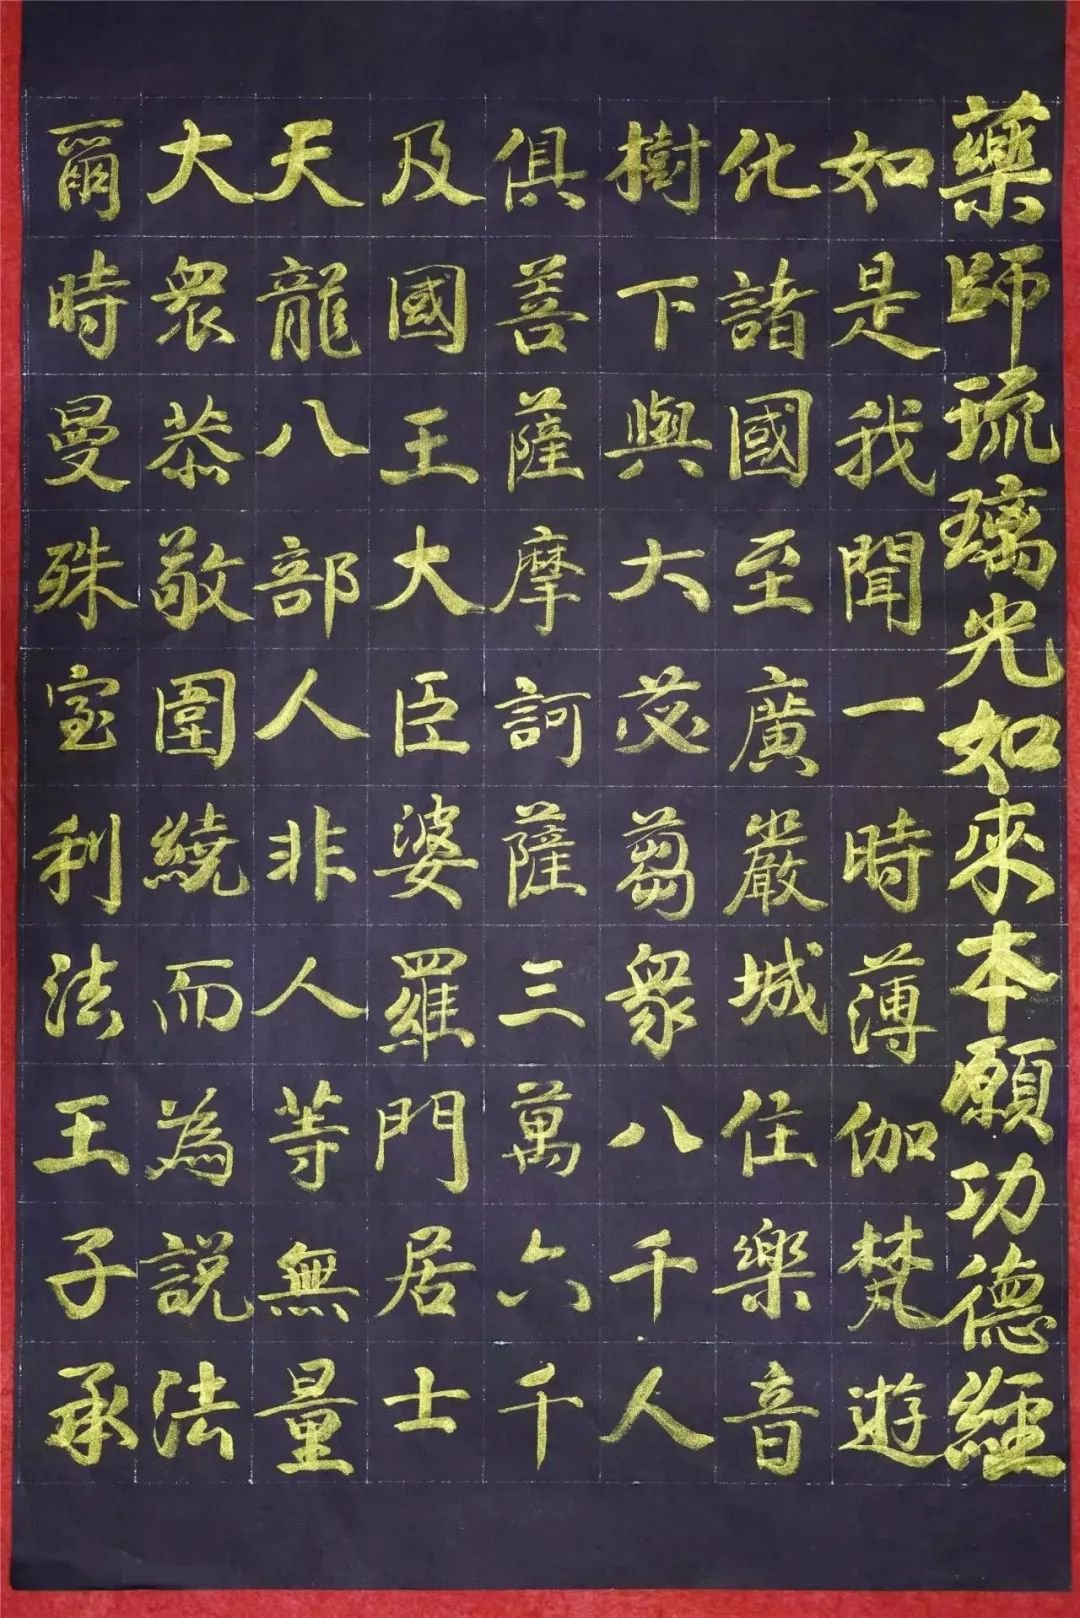 藥師琉璃光如來本願功德經
如是我聞一時薄伽梵遊
化諸國至廣嚴城住樂音
樹下與大苾芻眾八千人
俱菩薩摩訶薩三萬六千
及國王大臣婆羅門居士
天龍八部人非人等無量
大眾恭敬圍繞而為説法
爾時曼殊室利法王子承